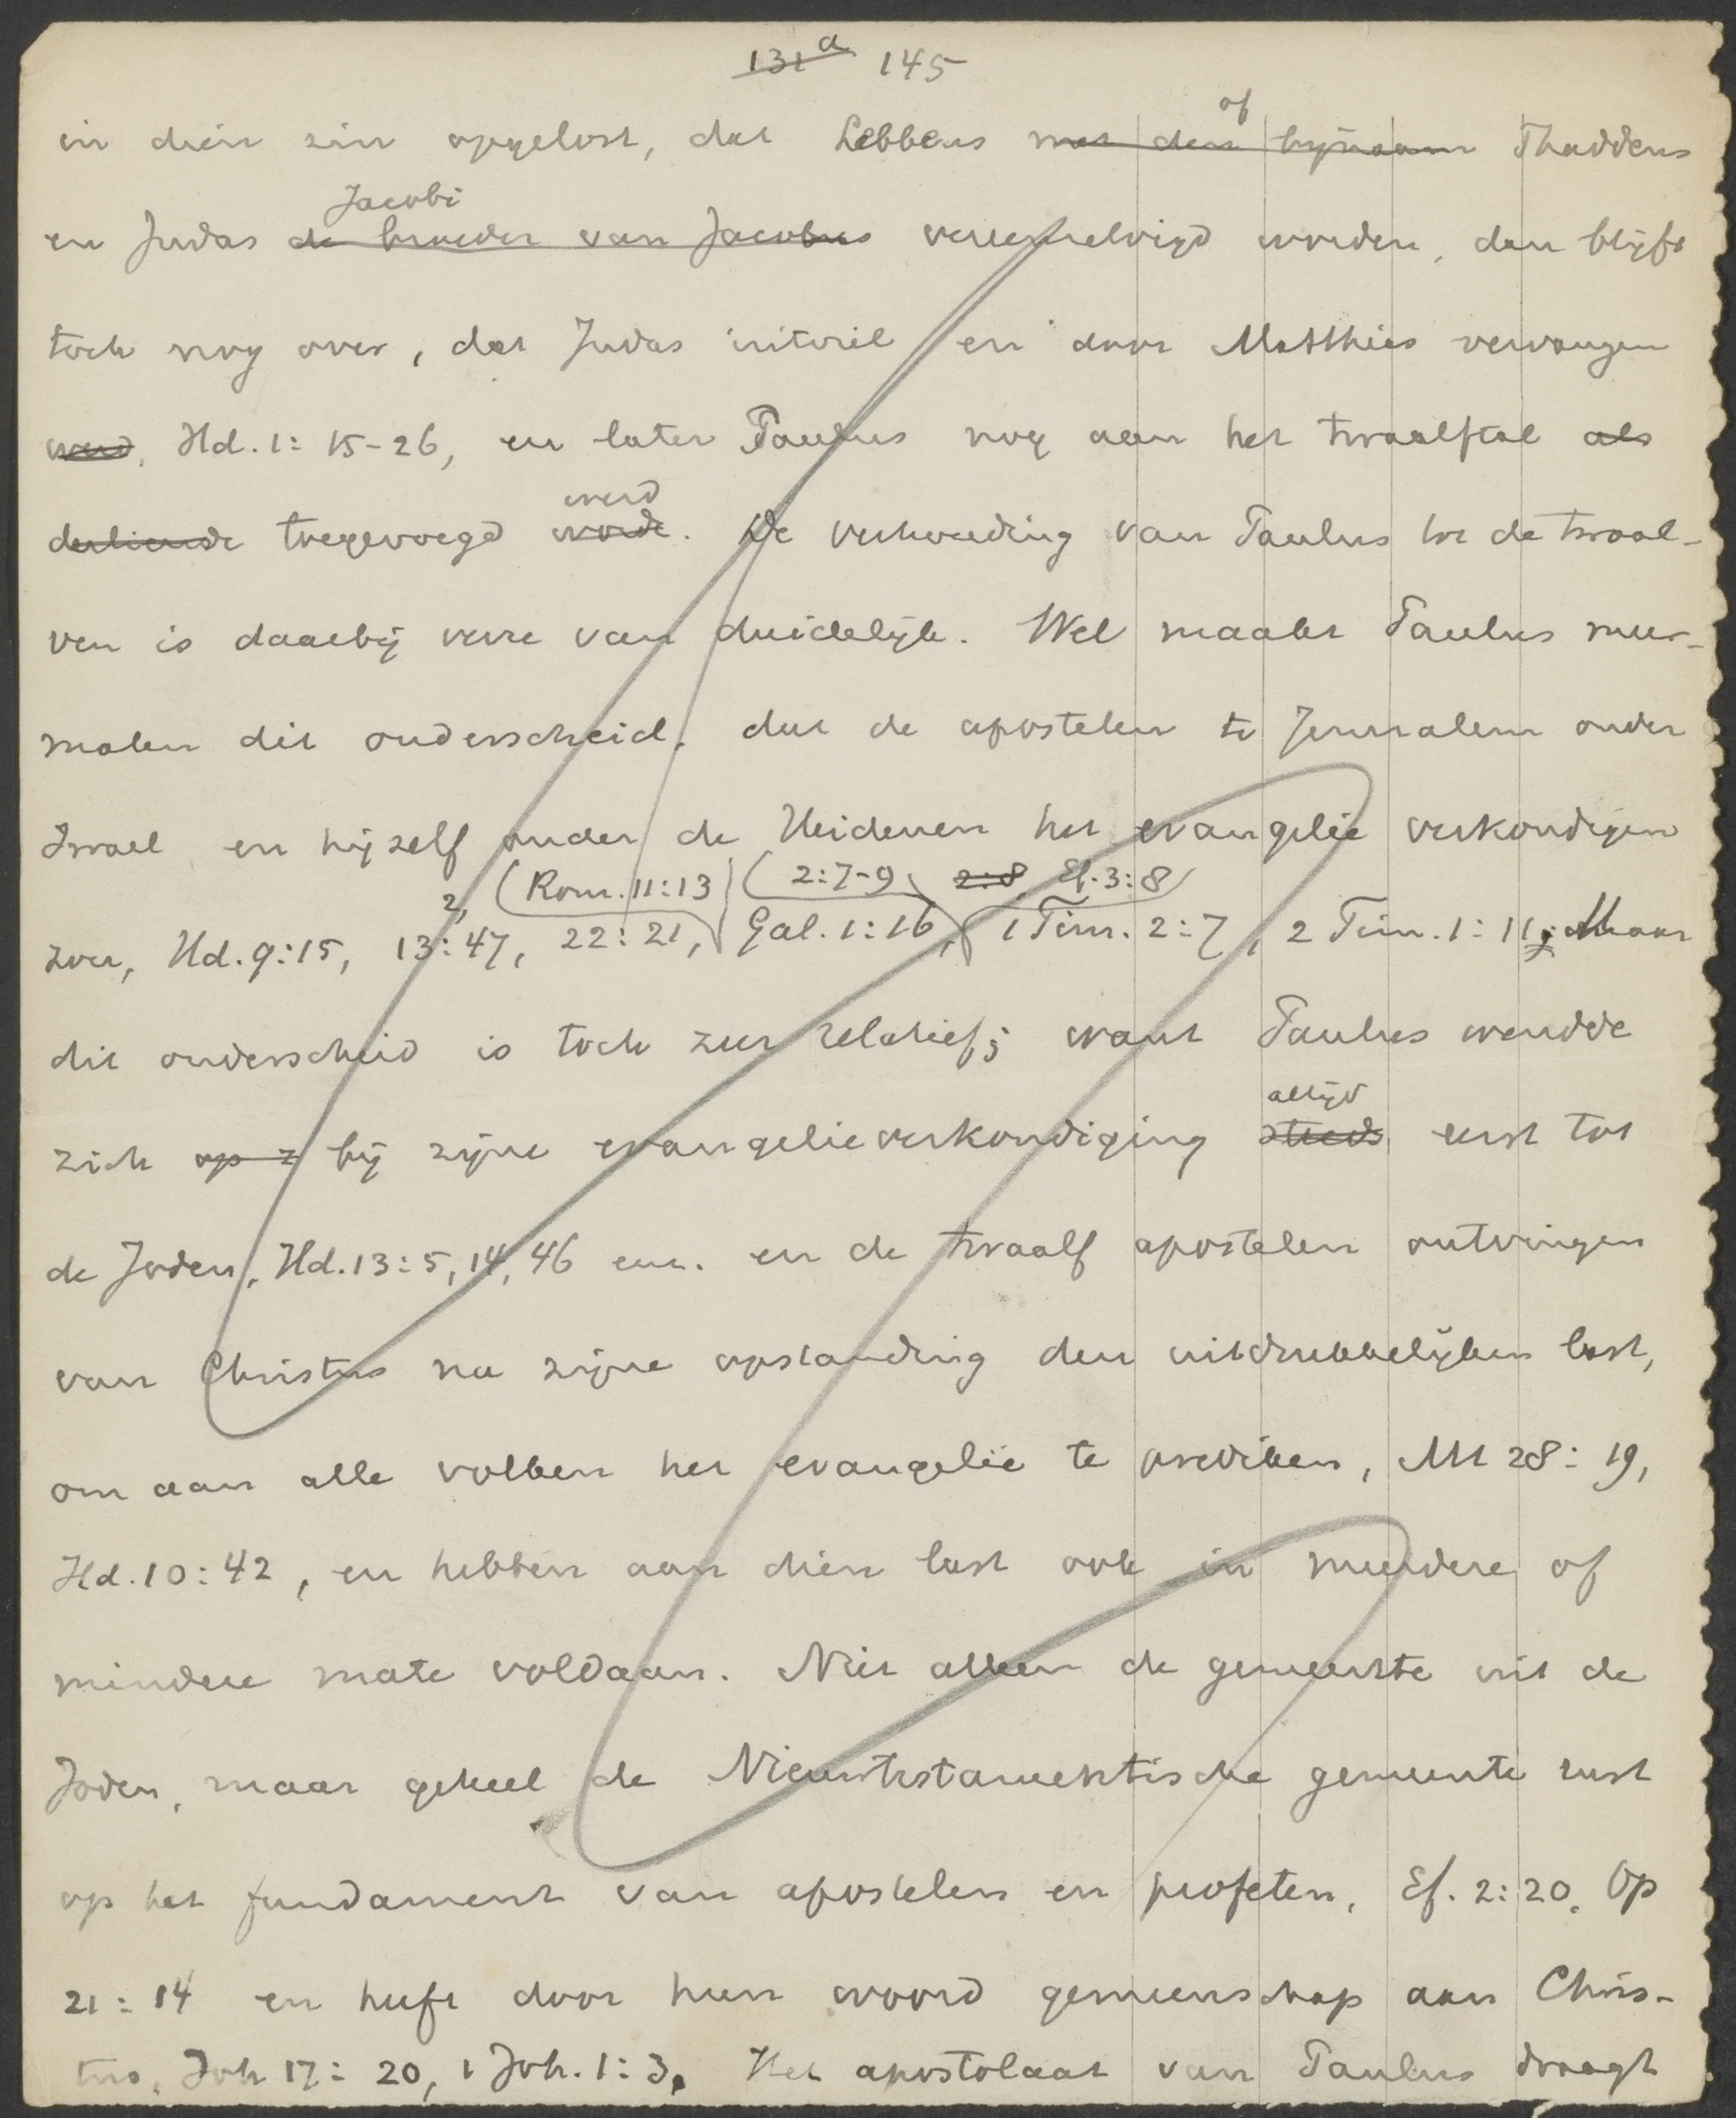 131a 145
of
in dien zin opgelost, dat Lebbeus met den bijnaam Thaddeus
Jacobi
en Judas de broeder van Jacobus vereenzelvigd worden, dan blijft
toch nog over, dat Judas uitviel en door Matthias vervangen
werd, Hd. 1:15-26, en later Paulus nog aan het twaalftal als
werd
dertiende toegevoegd worde. De verhouding van Paulus tot de twaal-
ven is daarbij verre van duidelijk. Wel maakt Paulus meer-
malen dit onderscheid, dat de apostelen te Jeruzalem onder
Israel en hijzelf onder de Heidenen het evangelie verkondigen
2, (Rom. 11:13) (2:7-9, 2:8, Ef. 3:8)
zou, Hd. 9:15, 13:47, 22:21, Gal. 1:16, 1 Tim. 2:7, 2 Tim. 1:11; Maar
dit onderscheid is toch zeer relatief; want Paulus wendde
altijd
zich op z bij zijne evangelieverkondiging steeds eerst tot
de Joden, Hd. 13:5, 14, 46 enz. en de twaalf apostelen ontvingen
van Christus na zijne opstanding den uitdrukkelijken last,
om aan alle volken het evangelie te prediken, Mt 28:19,
Hd. 10:42, en hebben aan dien last ook in meerdere of
mindere mate voldaan. Niet alleen de gemeente uit de
Joden, maar geheel de Nieuwtestamentische gemeente rust
op het fundament van apostelen en profeten, Ef. 2:20, Op
21:14 en heeft door hun woord gemeenschap aan Chris-
tus, Joh 17:20, 1 Joh. 1:3. Het apostolaat van Paulus draagt